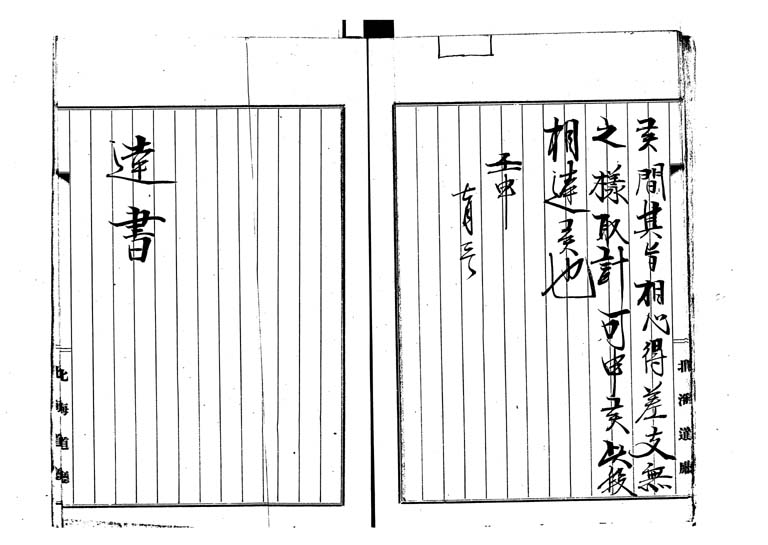 候間其旨相心得差支無
之様取計可申候此段
相達候也
壬申
達書
北海道廳
北海道廳